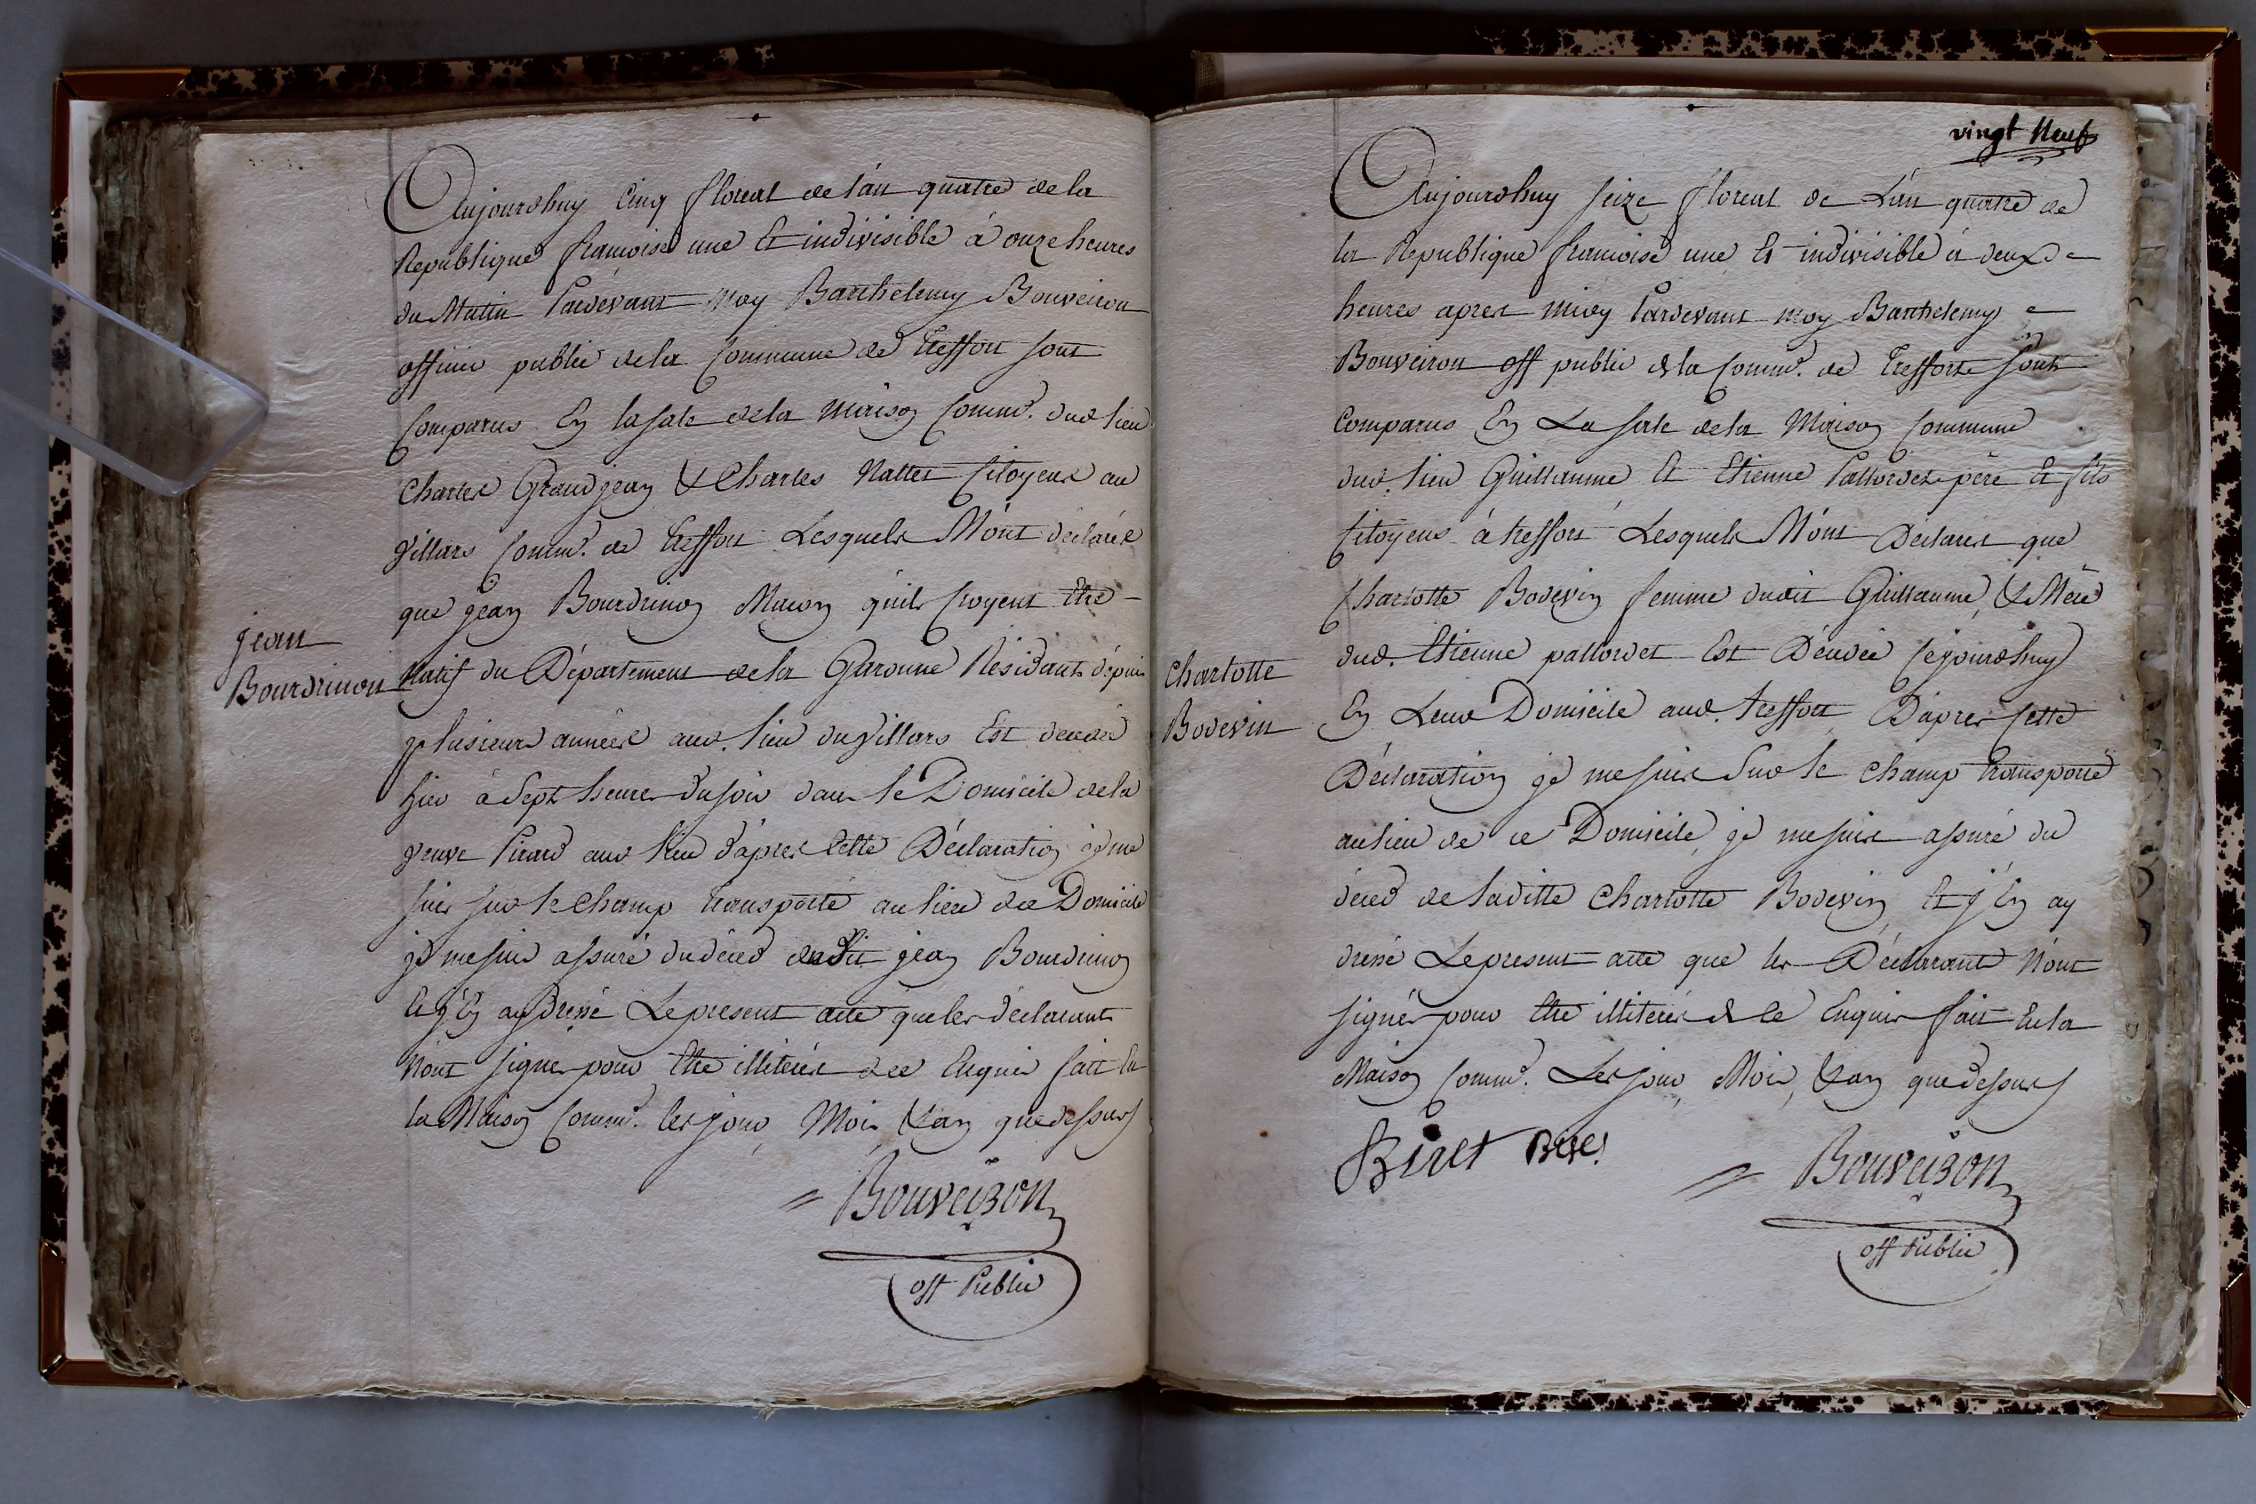 Aujourdhuy Cinq floreal de l'an quatre de la
Republique francoise une Et indivisible à onze heures
du Matin Pardevant moy Barthelemy Bouveiron
officier public de la Commune de Treffort sont
Comparus En la sale de la Maison Comm.e dud lieu
Charles Grandjean & Charles Nallet Citoyens au
Villars Comm.e de Treffort Lesquels M'ont déclarés
que jean Bourdinon Macon qu'ils Croyent Etre
jean
Bourdrinon
Natif du Département de la Garonne Residant dépuis
plusieurs années aud. lieu du Villars Est décédé
hier à Sept heures du soir dans le Domicile de la
veuve Picard aud lieu d'après Cette Déclaration je me
suis sur le champ transporté au lieu de ce Domicile
je me suis assuré du décés dudit jean Bourdinon
Et j'En ay Dressé Le present acte que les déclarants
N'ont signer pour Etre illiterés de ce Enquis fait En
la Maison Comm.e les jour, Mois, & an que dessus
Bouveiron
off Public
vingt Neuf
Aujourdhuy seize floreal de L'an quatre de
la Republique francoise une Et indivisible à deux
heures après midy Pardevant moy Barthelemy
Bouveiron off public de la Comm.e de Treffort Sont
Comparus En La sale de la Maison Commune
dud. lieu Guillaume Et Etienne Pallordet père Et fils
Citoyens à treffort Lesquels M'ont Déclarer que
Charlotte Bodevin femme dudit Guillaume, & Mère
dud. Etienne pallordet Est Décédée Cejourdhuy
Charlotte
Bodevin
En Leur Domicile aud. treffort D'après Cette
Déclaration je me suis Sur le champ transporté
au lieu de ce Domicile, je me suis assuré du
déced de laditte Charlotte Bodevin Et j'En ay
dressé Le present acte que les Déclarants N'ont
signés pour Etre illiterés de ce Enquis fait En la
Maison Comm.e Les jour, Mois, & an que dessus
Bouveiron
off Public